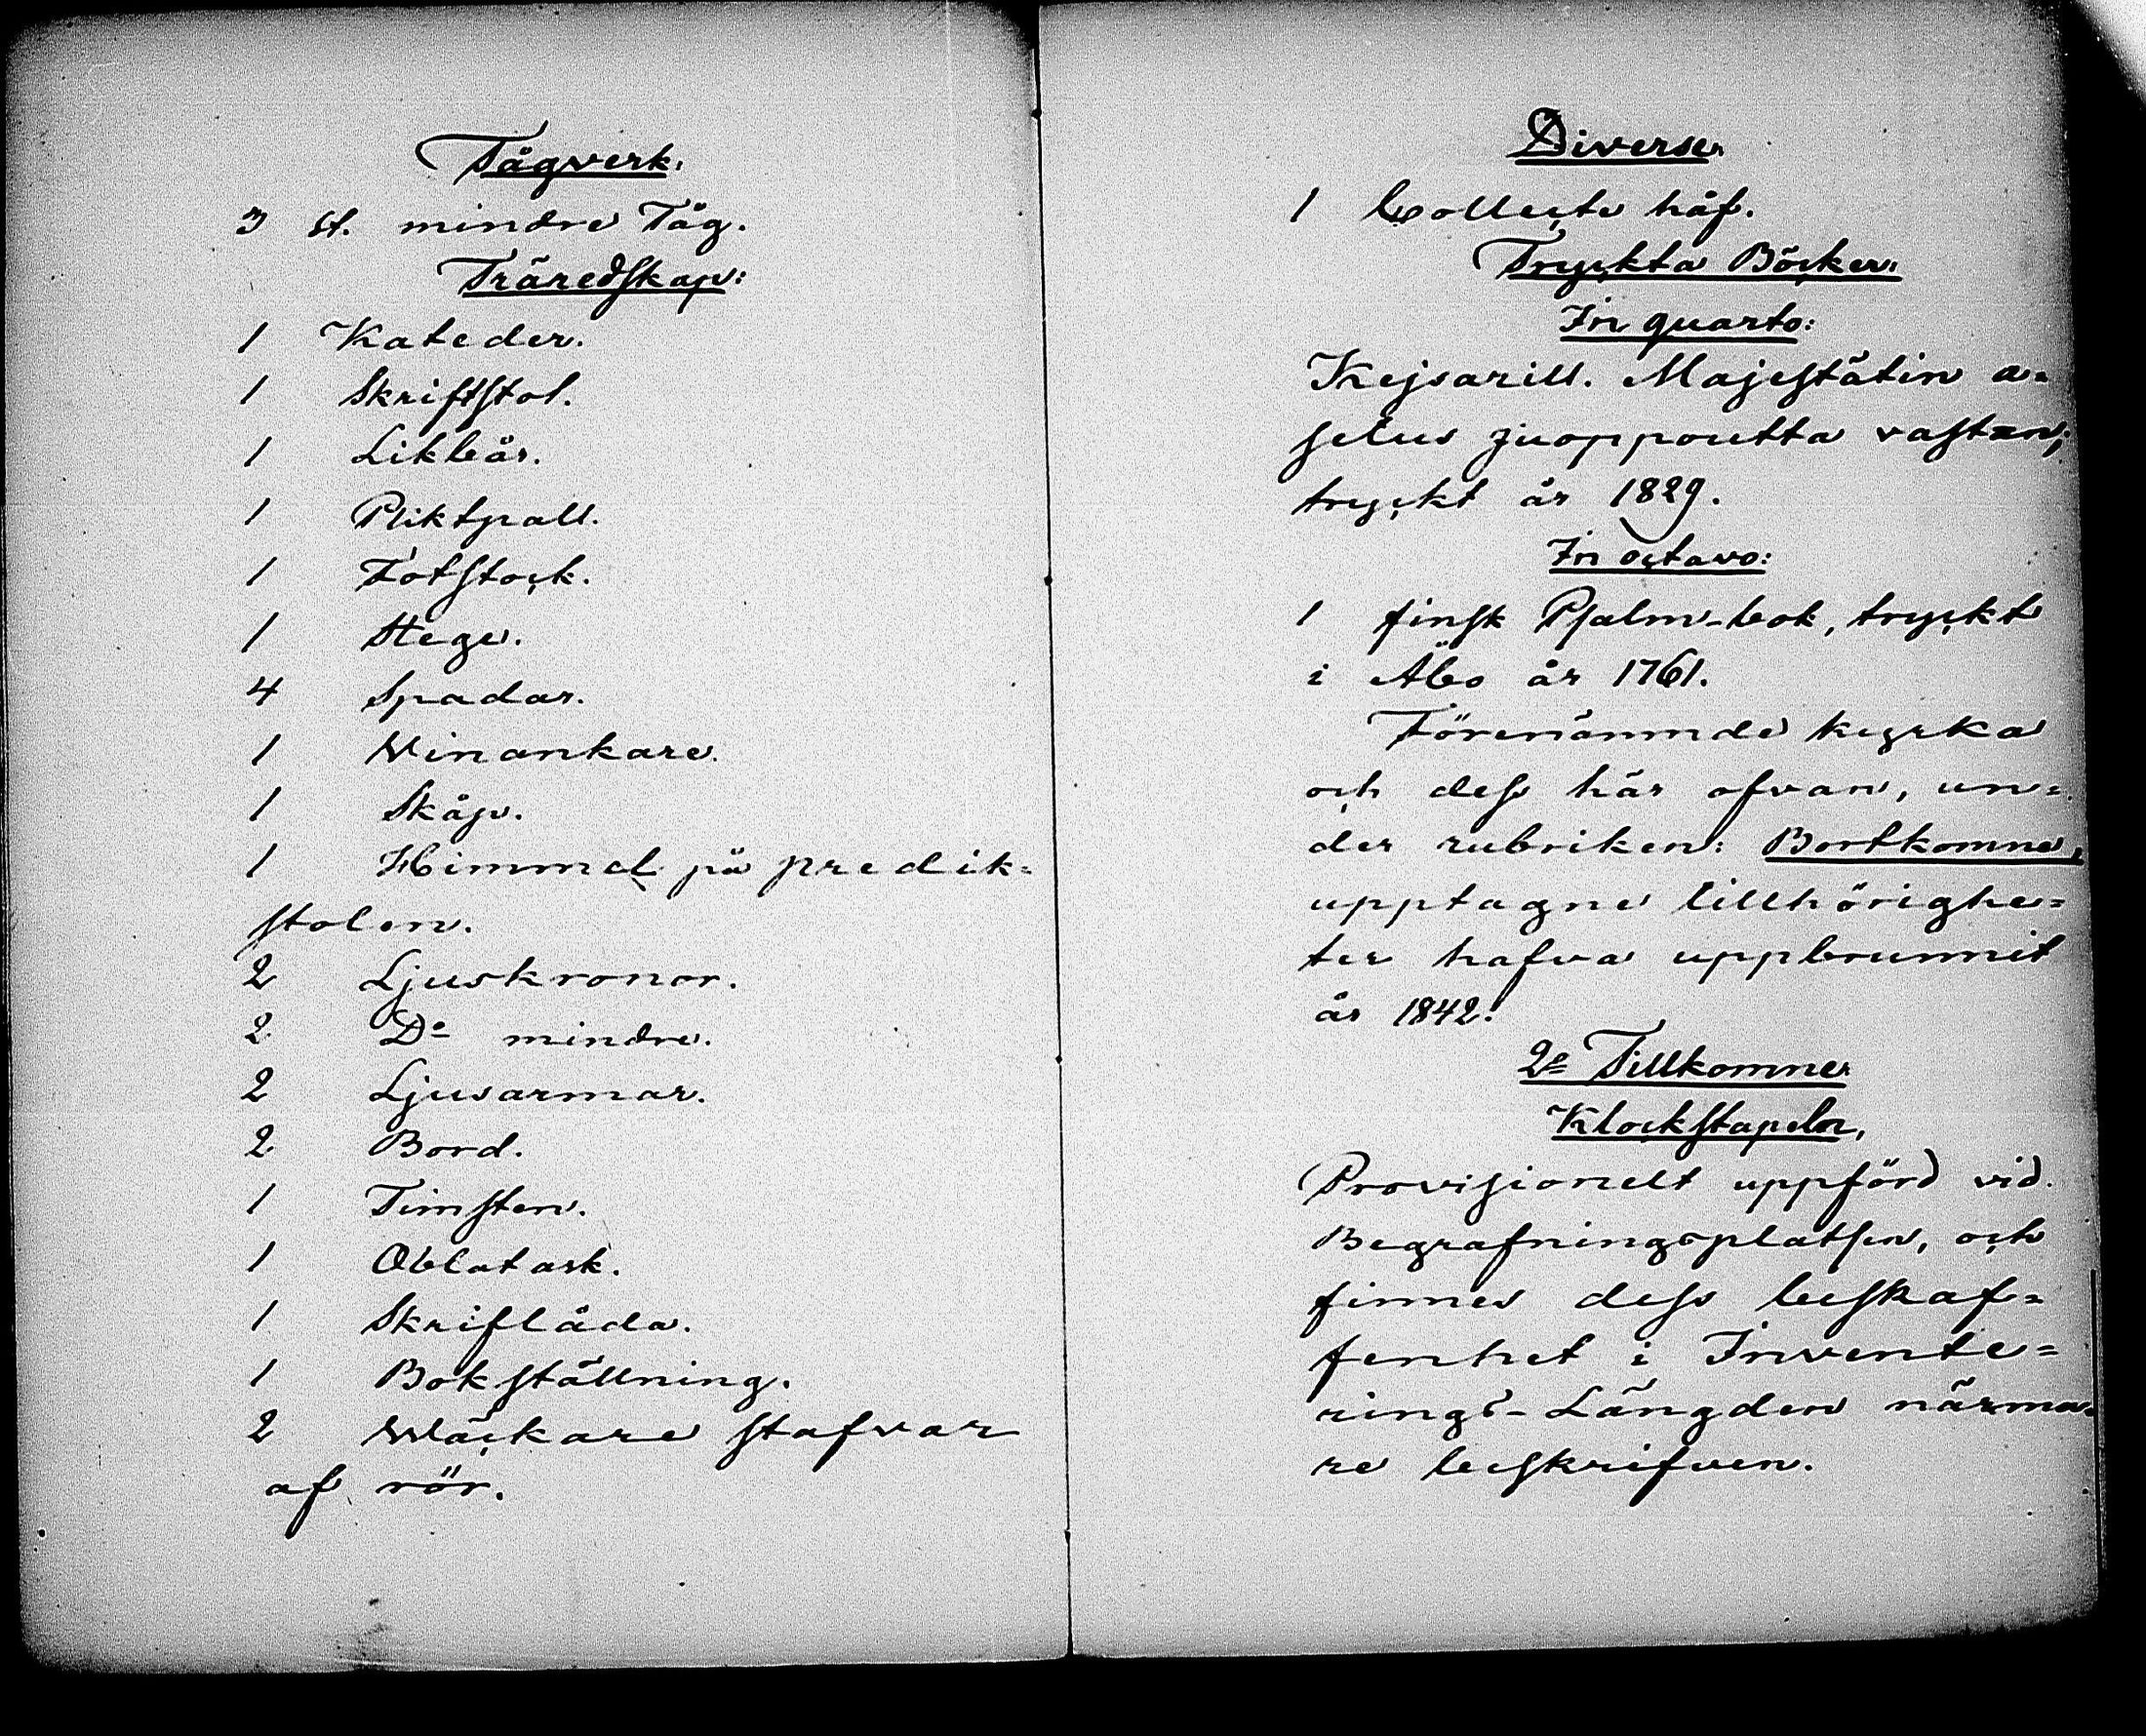 Tågverk:
3 st. mindre Tåg.
Träredskap:
1 Kateder.
1 Skriftstol.
1 Likbår.
1 Pliktpall.
1 Fotstock.
1 Stege.
4 Spadar.
1 Vinankare.
1 Skåp.
1 Himmel på predik=
stolen.
2 Ljuskronor.
2 Do mindre.
2 Ljusarmar.
2 Bord.
1 Timsten.
1 Oblatask.
1 Skriflåda.
1 Bokställning.
2 Wäckare stafvar
af rör.
Diverse.
1 Collecte håf.
Tryckta Böcker:
In quarto:
Kejsarill. Majestätin a=
setus juoppoutta vastan,
tryckt år 1829.
In octavo:
1 finsk Psalm-bok, tryckt
i Åbo år 1761.
Förenämnde kyrka
och dess här ofvan, un=
der rubriken: Bortkomne,
upptagne tillhörighe=
ter hafva uppbrunnit
år 1842.
2o Tillkomne
Klockstapeln,
Provisionelt uppförd vid
Begrafningsplatsen, och
finnes dess beskaf=
fenhet i Invente=
rings-Längden närma=
re beskrifven.